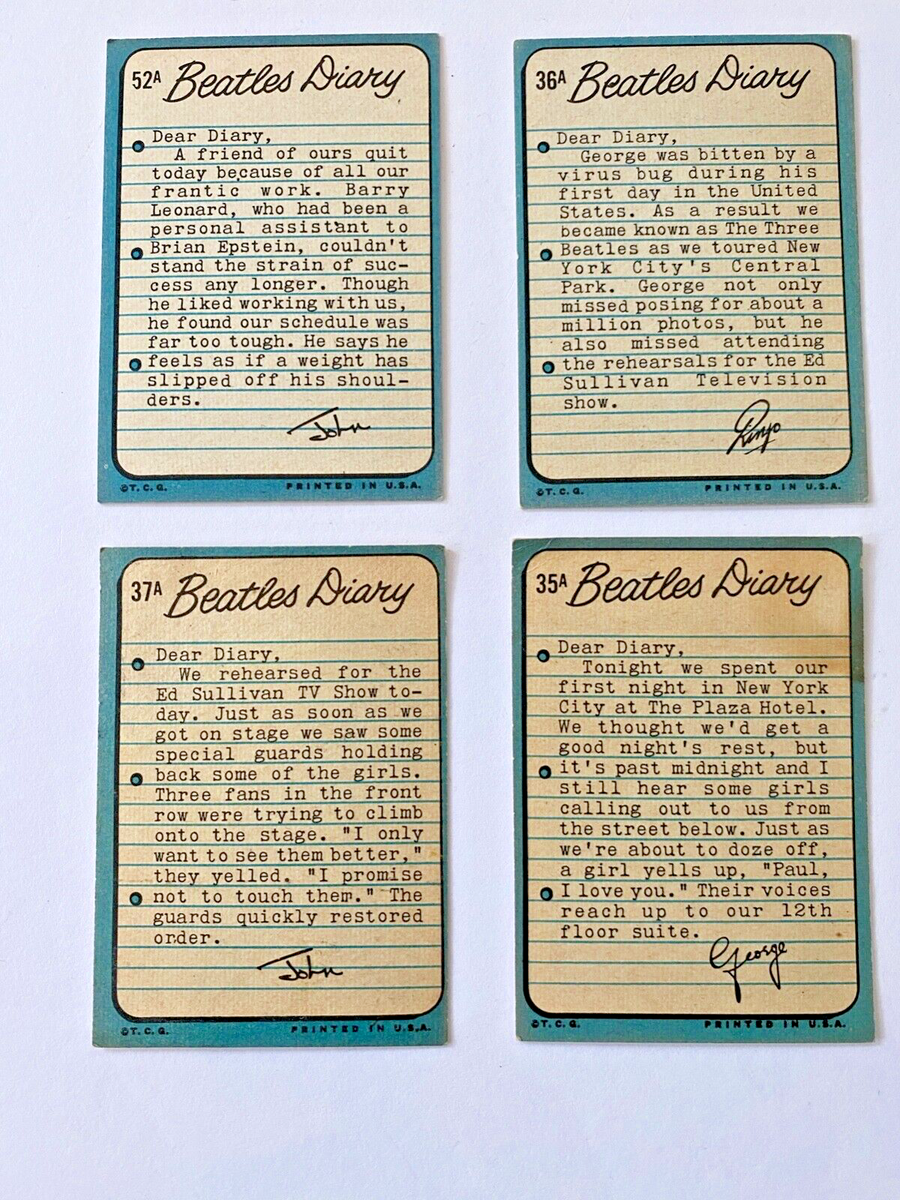 52A Beatles Diary
Dear Diary,
A friend of ours quit
today because of all our
frantic work. Barry
Leonard, who had been a
personal assistant to
Brian Epstein, couldn't
stand the strain of suc-
cess any longer. Though
he liked working with us,
he found our schedule was
far too tough. He says he
feels as if a weight has
slipped off his shoul-
ders.
John
©T.C.G. PRINTED IN U.S.A.
36A Beatles Diary
Dear Diary,
George was bitten by a
virus bug during his
first day in the United
States. As a result we
became known as The Three
Beatles as we toured New
York City's Central
Park. George not only
missed posing for about a
million photos, but he
also missed attending
the rehearsals for the Ed
Sullivan Television
show.
Ringo
©T.C.G. PRINTED IN U.S.A.
37A Beatles Diary
Dear Diary,
We rehearsed for the
Ed Sullivan TV Show to-
day. Just as soon as we
got on stage we saw some
special guards holding
back some of the girls.
Three fans in the front
row were trying to climb
onto the stage. "I only
want to see them better,"
they yelled. "I promise
not to touch them." The
guards quickly restored
order.
John
©T.C.G. PRINTED IN U.S.A.
35A Beatles Diary
Dear Diary,
Tonight we spent our
first night in New York
City at The Plaza Hotel.
We thought we'd get a
good night's rest, but
it's past midnight and I
still hear some girls
calling out to us from
the street below. Just as
we're about to doze off,
a girl yells up, "Paul,
I love you." Their voices
reach up to our 12th
floor suite.
George
©T.C.G. PRINTED IN U.S.A.